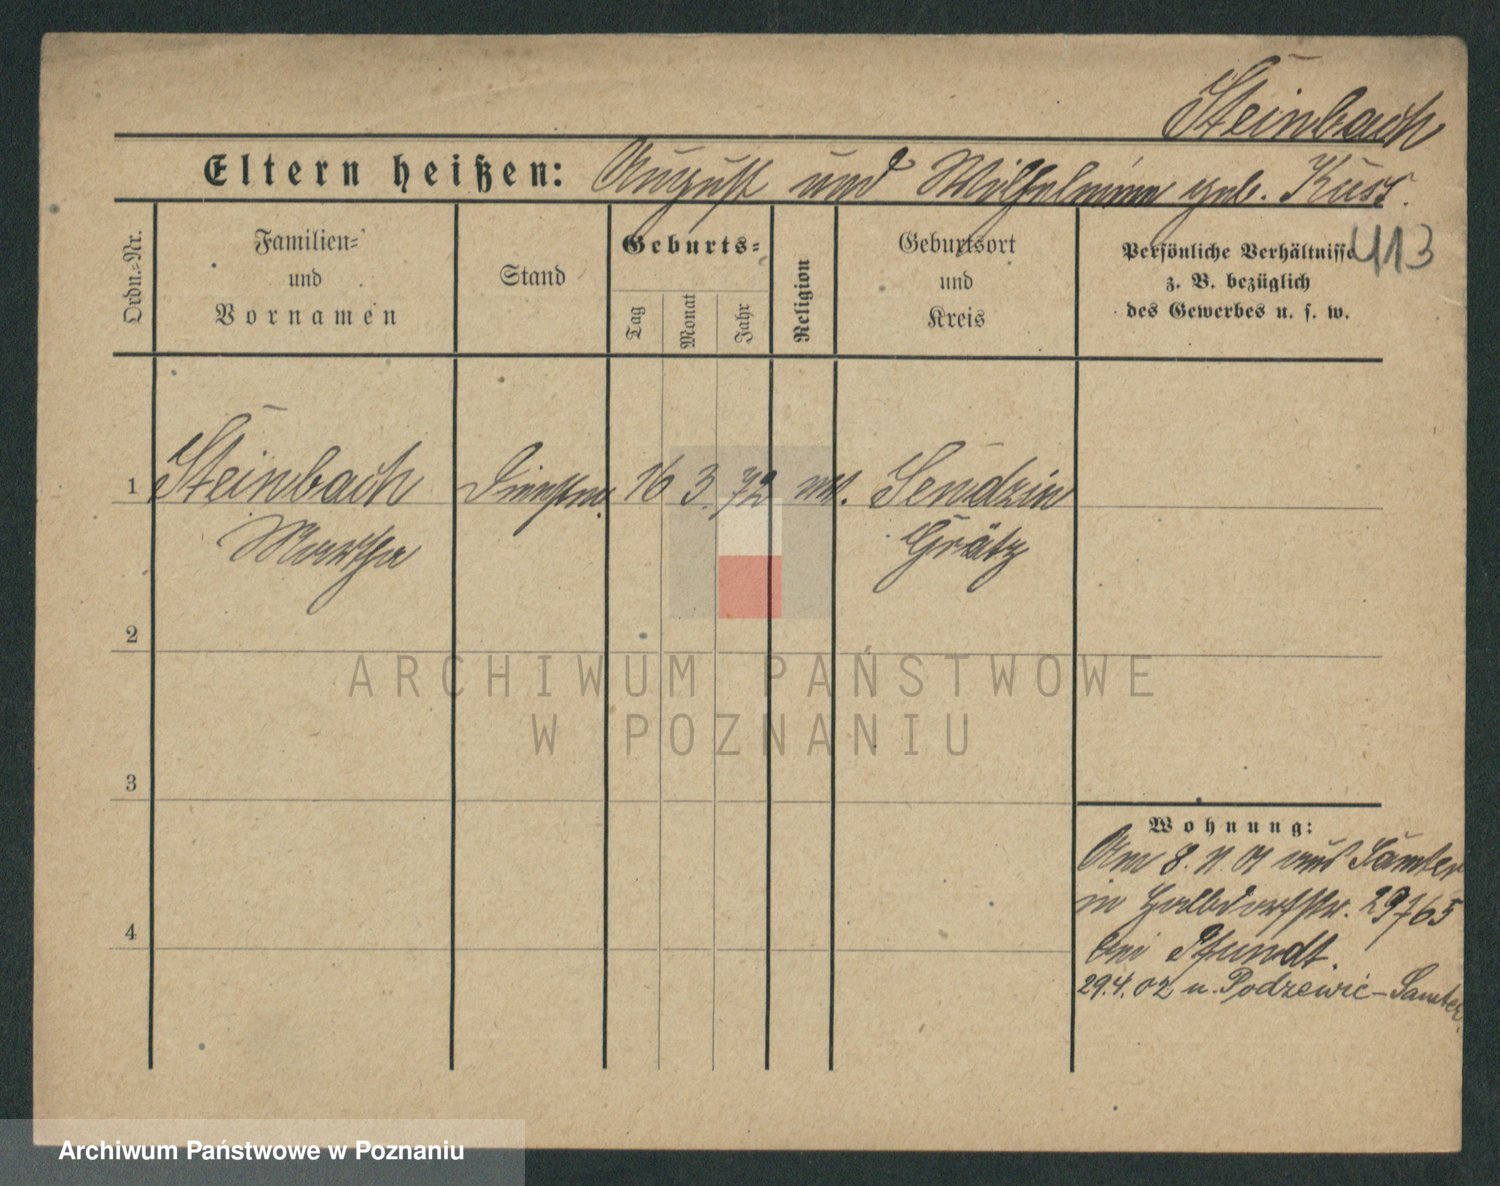 Steinbach
Eltern heißen: August und Wilhelmine geb. Kuss.
413
Ordn.=Nr.
Familien=
und
Vornamen
Stand
Geburts=
Tag
Monat
Jahr
Religion
Geburtsort
und
Kreis
Persönliche Verhältnisse
z. B. bezüglich
des Gewerbes u. s. w.
1 Steinbach 16 3. 72 Sendzin
Martha Grätz
2
ARCHIWUM PAŃSTWOWE
W POZNANIU
3
Wohnung:
Am 8. 11. 01 aus Samter
in Halbdorfstr. 29/65
bei Pfundt.
4
29.4.02 n. Podrzewie - Samter.
Archiwum Państwowe w Poznaniu